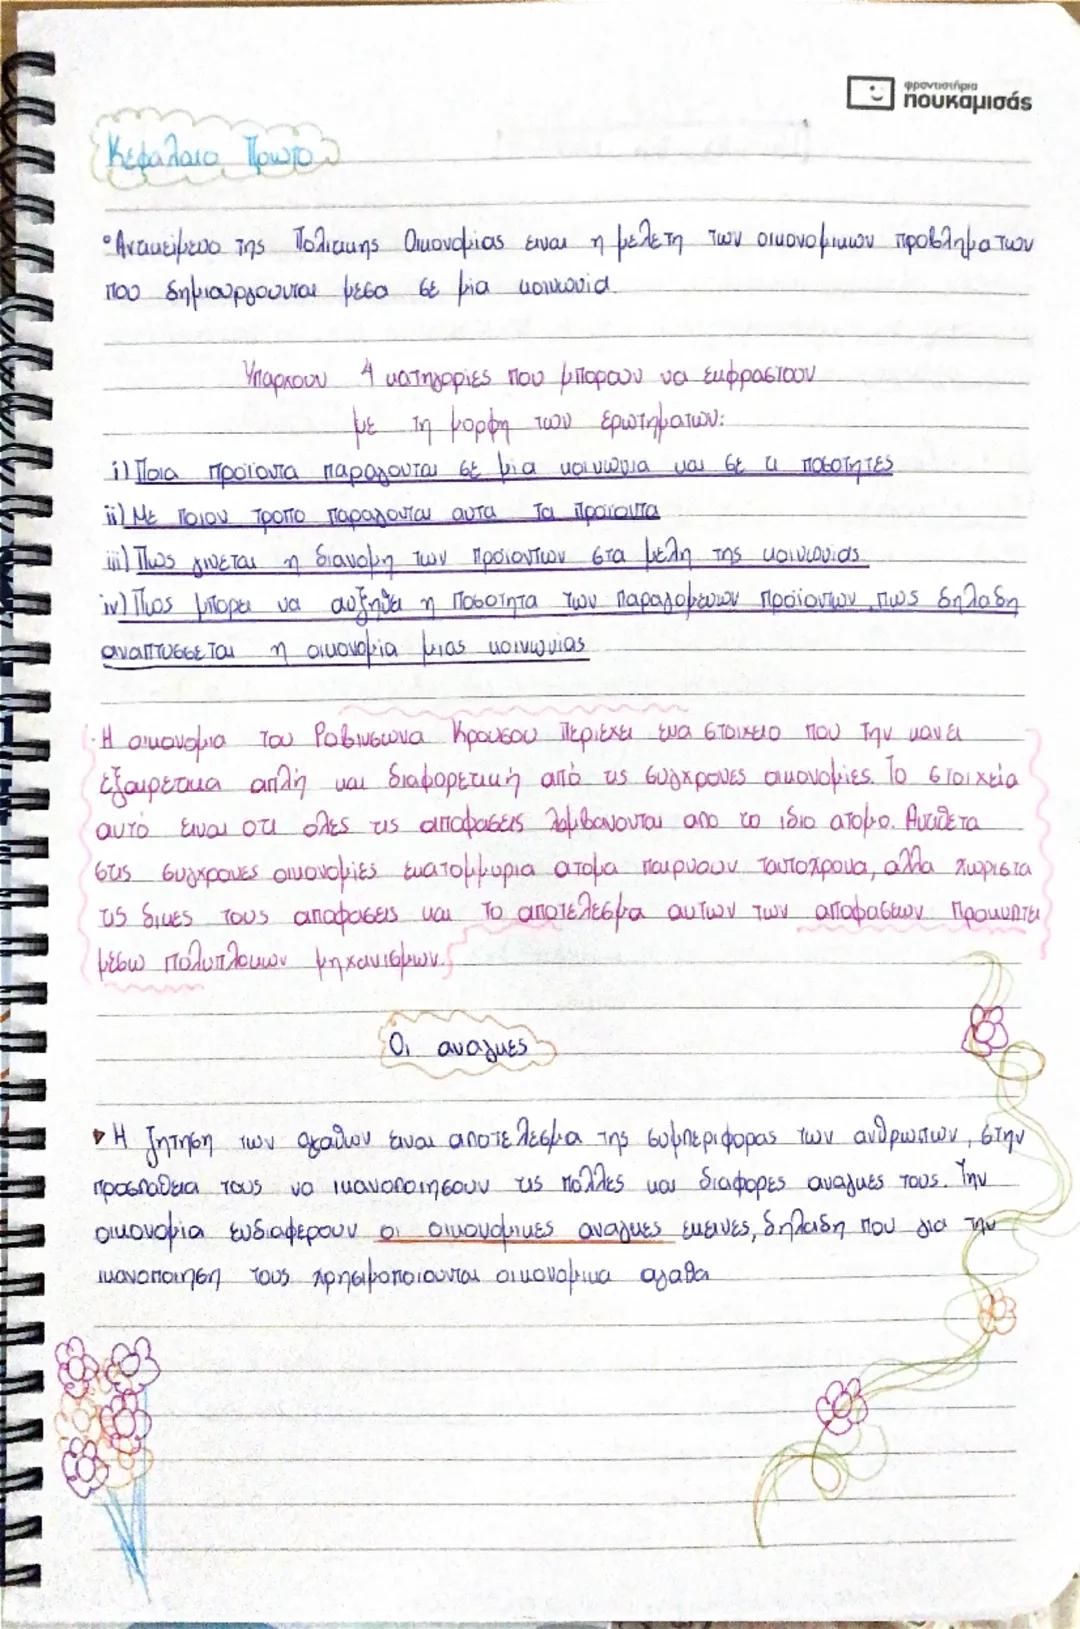 φροντιστήρια
πουκαμισάς
Κεφαλαιο Πρωτο
•Αντικειμενο της Πολιτικης Οικονομιας ειναι η μελετη των οικονομικων προβληματων
που δημιουργουνται μεσα σε μια κοινωνια.
Υπαρχουν 4 κατηγοριες που μπορουν να εκφραστουν
με τη μορφη των ερωτηματων:
i) Ποια προϊοντα παραγονται σε μια κοινωνια και σε τι ποσοτητες
ii) Με ποιον τροπο παραγονται αυτα τα προϊοντα
iii) Πως γινεται η διανομη των προϊοντων στα μελη της κοινωνιας
iv) Πως μπορει να αυξηθει η ποσοτητα των παραγομενων προϊοντων, πως δηλαδη
αναπτυσσεται η οικονομια μιας κοινωνιας
·Η οικονομια του Ροβινσωνα Κρουσου περιεχει ενα στοιχειο που την κανει
εξαιρετικα απλή και διαφορετική από τις συγχρονες οικονομιες. Το στοιχεία
αυτό ειναι οτι ολες τις αποφασεις λαμβανονται απο το ιδιο ατομο. Αντιθετα
στις συγχρονες οικονομιές εκατομμυρια ατομα παιρνουν ταυτοχρονα, αλλα χωριστα
τις δικες τους αποφασεις και το αποτελεσμα αυτων των αποφασεων προκυπτει
μέσω πολυπλοκων μηχανισμων.
Οι αναγκες
▸Η ζητηση των αγαθων ειναι αποτελεσμα της συμπεριφορας των ανθρωπων, στην
προσπαθεια τους να ικανοποιησουν τις πολλες και διαφορες αναγκες τους. Την
οικονομια ενδιαφερουν οι οικονομικες αναγκες εκεινες, δηλαδη που για την
ικανοποιηση τους χρησιμοποιουνται οικονομικα αγαθα